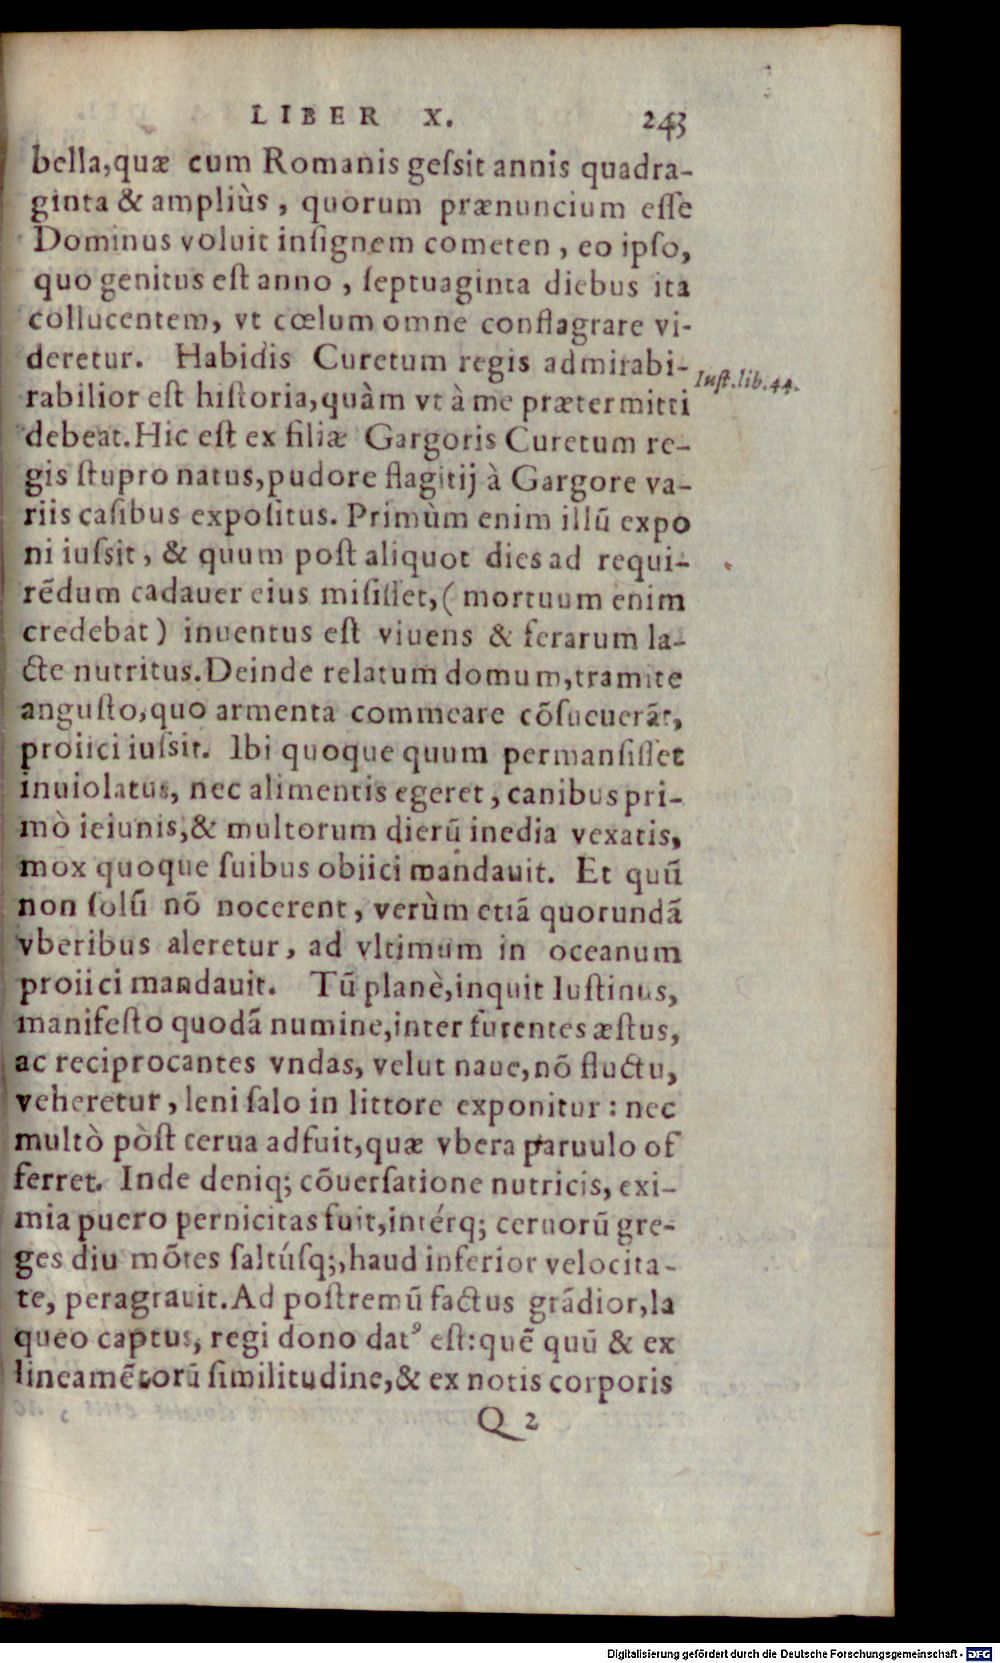 LIBER X. 243
bella,quæ cum Romanis geſsit annis quadra-
ginta & ampliùs, quorum prænuncium eſſe
Dominus voluit inſignem cometen, eo ipſo,
quo genitus eſt anno, ſeptuaginta diebus ita
collucentem, vt cœlum omne conflagrare vi-
deretur. Habidis Curetum regis admirabi-
Iuſt.lib.44.
rabilior eſt hiſtoria,quàm vt à me prætermitti
debeat.Hic eſt ex filiæ Gargoris Curetum re-
gis ſtupro natus,pudore flagitij à Gargore va-
riis caſibus expoſitus. Primùm enim illũ expo
ni iuſsit, & quum poſt aliquot dies ad requi-
rẽdum cadauer eius miſiſſet,(mortuum enim
credebat) inuentus eſt viuens & ferarum la-
cte nutritus.Deinde relatum domum,tramite
anguſto,quo armenta commeare cõſueuerãt,
proiici iuſsit. Ibi quoque quum permanſiſſet
inuiolatus, nec alimentis egeret, canibus pri-
mò ieiunis,& multorum dierũ inedia vexatis,
mox quoque ſuibus obiici mandauit. Et quũ
non ſolũ nõ nocerent, verùm etiã quorundã
vberibus aleretur, ad vltimum in oceanum
proiici mandauit. Tũ planè,inquit Iuſtinus,
manifeſto quodã numine,inter furentes æſtus,
ac reciprocantes vndas, velut naue,nõ fluctu,
veheretur, leni ſalo in littore exponitur: nec
multò pòſt cerua adfuit,quæ vbera paruulo of
ferret. Inde deniq; cõuerſatione nutricis, exi-
mia puero pernicitas fuit,intérq; ceruorũ gre-
ges diu mõtes ſaltúſq;,haud inferior velocita-
te, peragrauit.Ad poſtremũ factus grãdior,la
queo captus, regi dono datꝰ eſt:quẽ quũ & ex
lineamẽtorũ ſimilitudine,& ex notis corporis
Q 2
Digitalisierung gefördert durch die Deutsche Forschungsgemeinschaft - DFG